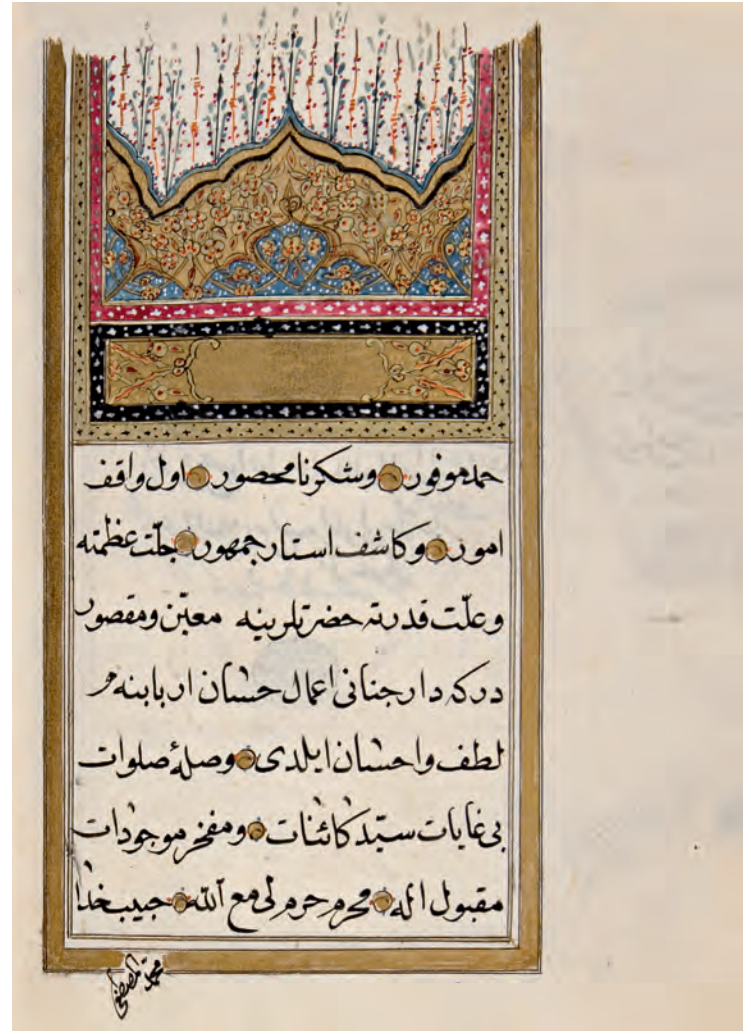 حمد موفور وشكر نامحصور اول واقف
امور وكاشف استار جمهور جلّت عظمته
وعلّت قدرته حضرتلرينه معيّن ومقصور
دركه دار جنانى اعمال حسان اربابنه
لطف واحسان ايلدى وصلۀ صلوات
بى غايات سيّد كائنات ومفخر موجودات
مقبول اله محرم حرم لى مع الله حبيب خدا
محمد المصطفى